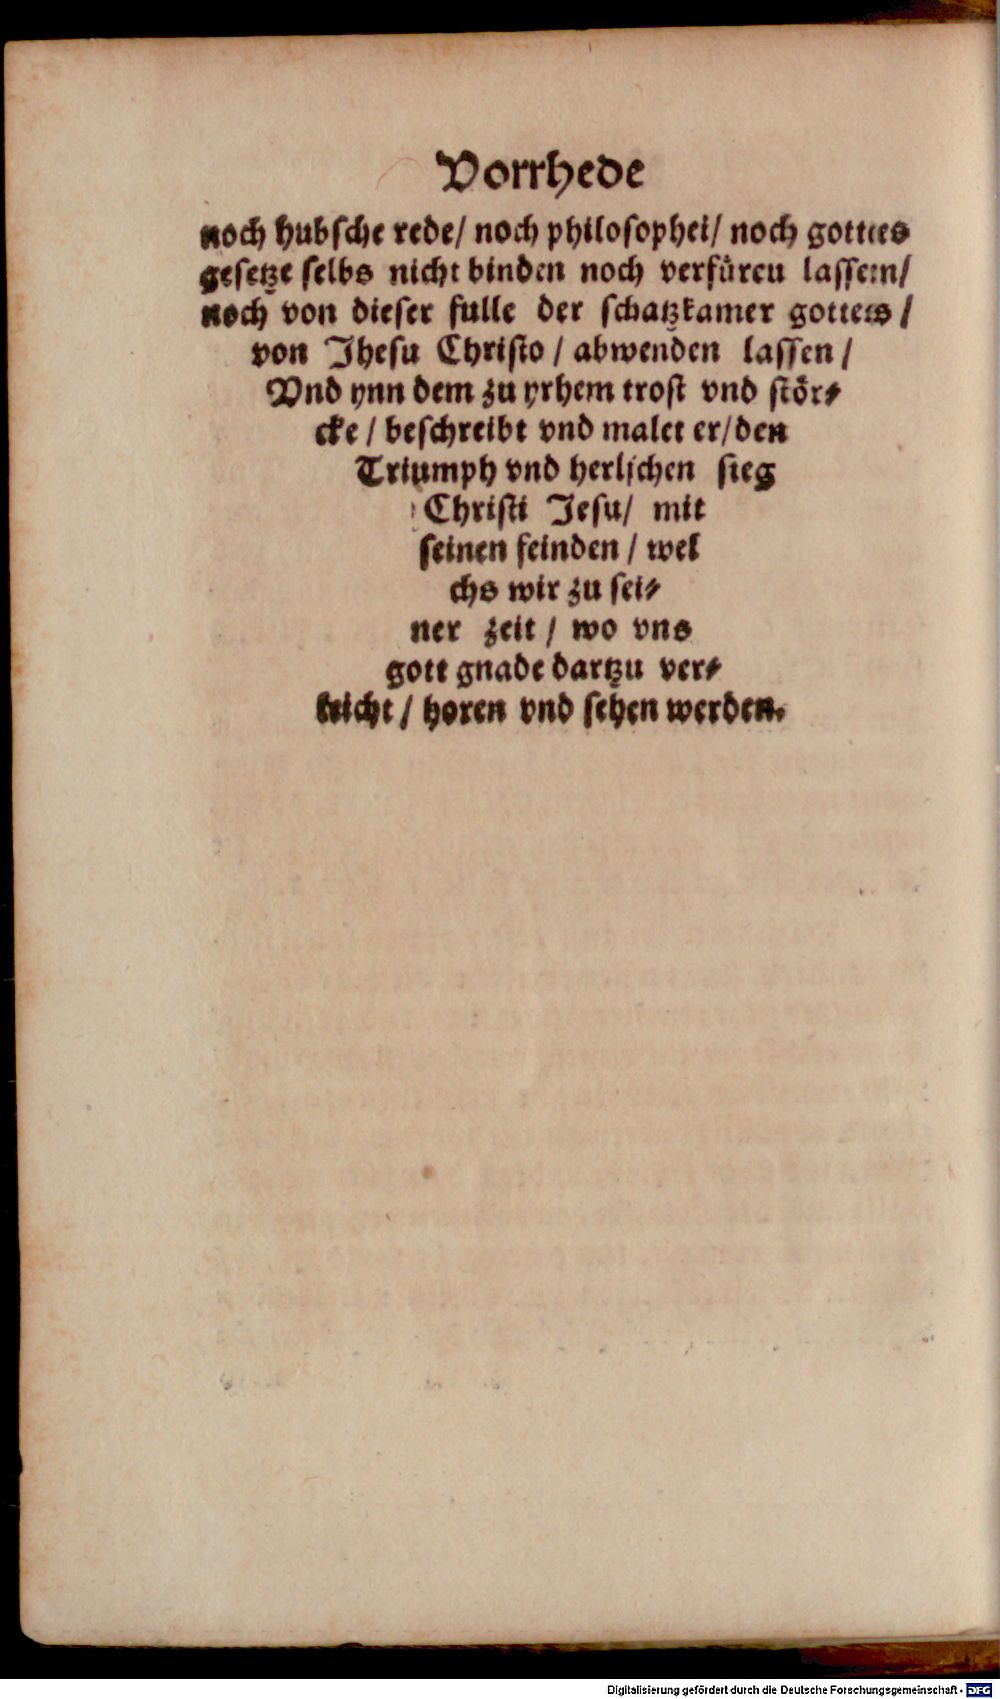 Vorrhede
noch hubsche rede/ noch philosophei/ noch gottes
gesetze selbs nicht binden noch verfüren lassenn/
noch von dieser fulle der schatzkamer gottes /
von Jhesu Christo / abwenden lassen /
Vnd ynn dem zu yrhem trost vnd stör⸗
cke / beschreibt vnd malet er/den
Triumph vnd herlichen sieg
Christi Jesu/ mit
seinen feinden / wel
chs wir zu sei⸗
ner zeit / wo vns
gott gnade dartzu ver⸗
leicht / horen vnd sehen werden.
Digitalisierung gefördert durch die Deutsche Forschungsgemeinschaft - DFG